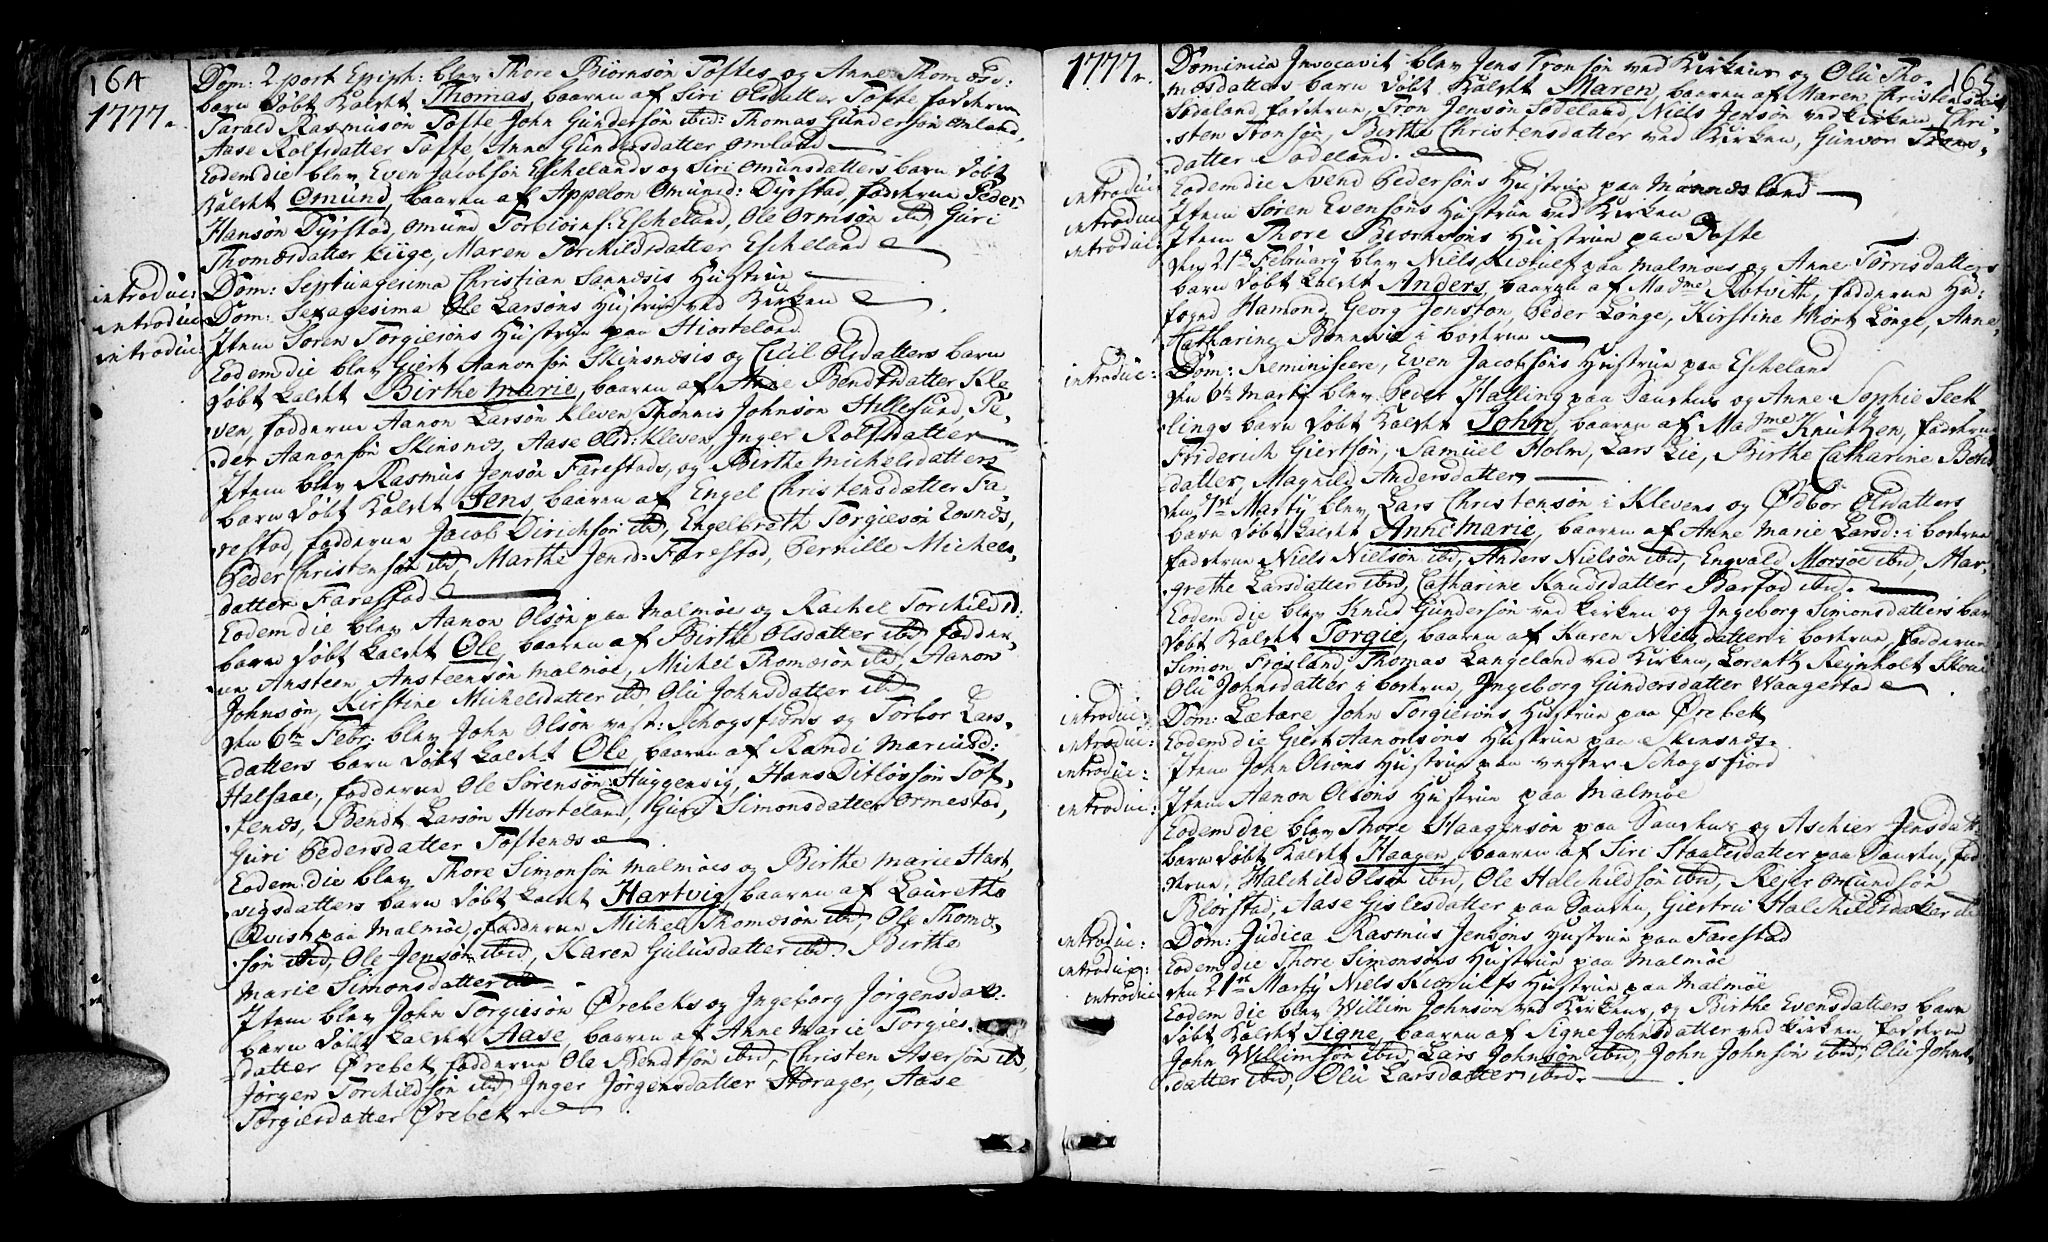 164
1777.
Dom: 2 post Epiph: blev Thore Biörnsön Toftes og Anne Thomæsd:
barn döbt kaldet Thomas, baaren af Siri Olsdatter Tofte fadderne
Tarald Rasmusön Tofte John Gundersön ibid: Thomas Gundersön Omland,
Aase Rolfsdatter Tofte Anne Gundersdatter Omland
Eodem die blev Even Jacobsön Eschelands og Siri Omunsdatters barn döbt
kaldet Omund, baaren af Appelon Omund: Dyrstad, fadderne Peder
Hansön Dyrstad, Omund Torbiörns: Escheland, Ole Ormsön ibid, Guri
Thomæsdatter Kuge, Maren Torchildsdatter Escheland
introduc: Dom: Septuagesima Christian Sannæsis Hustrue
introduc: Dom: Sexagesima Ole Larsöns Hustrue ved Kirken
introduc: Item Sören Torgiersöns Hustrue paa Hiorteland
Eodem die blev Giert Aanonsön Skinsnæsis og Cicil Olsdatters barn
döbt kaldet Birthe Marie, baaren af Anne Bendtsdatter Kle-
ven, fadderne Aanon Larsön Kleven Thönnis Johnsön Hillesund, Pe-
der Aanonsön Skinsnæs, Aase Olsd: Kleven Inger Rolfsdatter
Item blev Rasmus Jensön Farestads, og Birthe Michelsdatters
barn döbt kaldet Jens, baaren af Engel Christensdatter Fa-
restad, fadderne Jacob Dirichsön ibid, Engelbrath Torgiesön Eosnæs,
Peder Christensön ibid, Marthe Jensd: Farestad, Pernille Michels-
datter Farestad
Eodem die blev Aanon Olsön paa Malmöe og Rachel Torchildsd:
barn döbt kaldet Ole, baaren af Birthe Olsdatter ibid, fadder-
ne Ansteen Ansteensön Malmöe, Michel Thomæsön ibid, Aanon
Johnsön, Kirstine Michelsdatter ibid, Olu Johnsdatter ibid
den 6te Febr: blev John Olsön vest: Schogsfiords og Torbor Lars-
datters barn döbt kaldet Ole, baaren af Randi Mariusd:
Halsaae, fadderne Ole Sörensön Huggenvig, Hans Ditlövsön Tof-
tenæs, Bendt Larsön Hiorteland, Guri Simonsdatter Ormestad,
Guri Pedersdatter Toftenæs
Eodem die blev Thore Simonsön Malmöes og Birthe Marie Hart-
vigsdatters barn döbt kaldet Hartvig, baaren af Laurethe
Qvist paa Malmöe, fadderne Michel Thomæsön ibid, Ole Thomæ-
sön ibid, Ole Jensön ibid, Karen Gulusdatter ibid. Birthe
Marie Simonsdatter ibid
Item blev John Torgiesön Örebeks og Ingeborg Jörgensdat:
barn döbt kaldet Aase, baaren af Anne Marie Torgies-
datter Örebek, fadderne Ole Bendtsön ibid, Christen Asersön ibid,
Jörgen Torchildsön ibid, Inger Jörgensdatter Storager, Aase
Torgiesdatter Örebek
1777.
165
Dominica Invocavit blev Jens Tronsön ved Kirken og Olu Tho-
mæsdatters barn döbt kaldet Maren, baaren af Maren Christensdat
Sodeland, fadderne Tron Jensön Sodeland, Niels Jensön ved Kirken, Chri-
sten Tronsön, Birthe Christensdatter ved Kirken, Gunvor Trons-
datter Sodeland.
introduc: Eodem die Svend Pedersöns Hustrue paa Mannesland
introduc: Item Sören Evensöns Hustrue ved Kirken
introduc: Item Thore Biörnsöns Hustrue paa Tofte
den 21de February blev Niels paa Malmöes og Anne Torrisdatters
barn döbt kaldet Anders, baaren af Madme Rotvitt, fadderne Hr:
fogd Hamond, Georg Jonston, Peder Longe, Kirstine Hiort Longe, Anne
Catharine Bonnevie i boserne
introduc: Dom: Reminiscere, Even Jacobsöns Hustrue paa Escheland
den 6te Marty blev Peder Halling paa Sanshus og Anne Sophie Seek
lings barn döbt kaldet John, baaren af Madme Knutzen, fadderne
Friderich Giertsön, Samuel Holm, Lars Lie, Birthe Catharine
datter, Magnild Andersdatter
den 7de Marty blev Lars Christensön i Klevens og Ödbor Olsdatters
barn döbt kaldet Anne Marie, baaren af Anne Marie Larsd: i boserne
fadderne Niels Nielsön ibid, Anders Nielsön ibid, Engvald Morsöe ibid, Mar-
grethe Larsdatter ibid, Catharine Knudsdatter Barfod ibid.
Eodem die blev Knud Gundersön ved Kirken og Ingeborg Simonsdatters barn
döbt kaldet Torgie, baaren af Karen Nielsdatter i boserne, fadderne
Simon Fröjsland, Thomas Langeland ved Kirken, Lorentz Rejnholt
Olu Johnsdatter i boserne, Ingeborg Gundersdatter Waagestad
introduc: Dom: Lætare John Torgiesöns Hustrue paa Örebek
introduc: Eodem die Giert Aanonsöns Hustrue paa Skinsnæs.
introduc: Item John Olsöns Hustrue paa vester Schogsfiord
introduc: Item Aanon Olsöns Hustrue paa Malmöe
Eodem die blev Thore Haagensön paa Sanshus og Aschier Jensdatt:
barn döbt kaldet Haagen, baaren af Siri Staalesdatter paa Sanshu, fad-
derne, Halchild Olsön ibid, Ole Halchildsön ibid, Rejer Omundsön
Blörstad, Aase Gislesdatter paa Sanshu, Giertru Halchildsdatter ibid
introduc: Dom: Judica Rasmus Jensöns Hustrue paa Farestad
introduc: Eodem die Thore Simonsöns Hustrue paa Malmöe
introduc den 21de Marty Niels Hustrue paa Malmöe
Eodem die blev Willim Johnsön ved Kirkens, og Birthe Evensdatters barn
döbt kaldet Signe, baaren af Signe Johnsdatter ved Kirken, fadderne
John Willimsön ibid, Lars Johnsön ibid, John Johnsön ibid, Olu Johns-
datter ibid, Olu Larsdatter ibid.